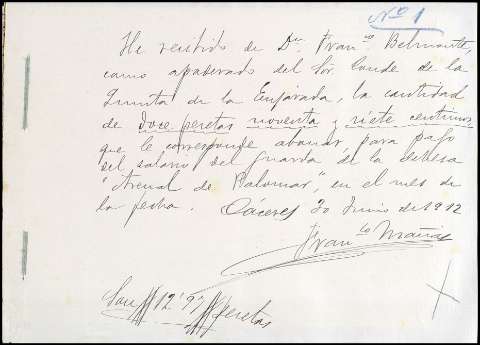 Nº 1
He recibido de Dn. Franco. Belmonte,
como apoderado del Sor. Conde de la
Quinta de la Enjarada, la cantidad
de doce pesetas noventa y siete centimos
que le corresponde abonar, para pago
del salario del guarda de la dehesa
"Arenal de Palomar", en el mes de
la fecha. Cáceres 30 Junio de 1912
Franco Mañas
Son # 12'97 # pesetas